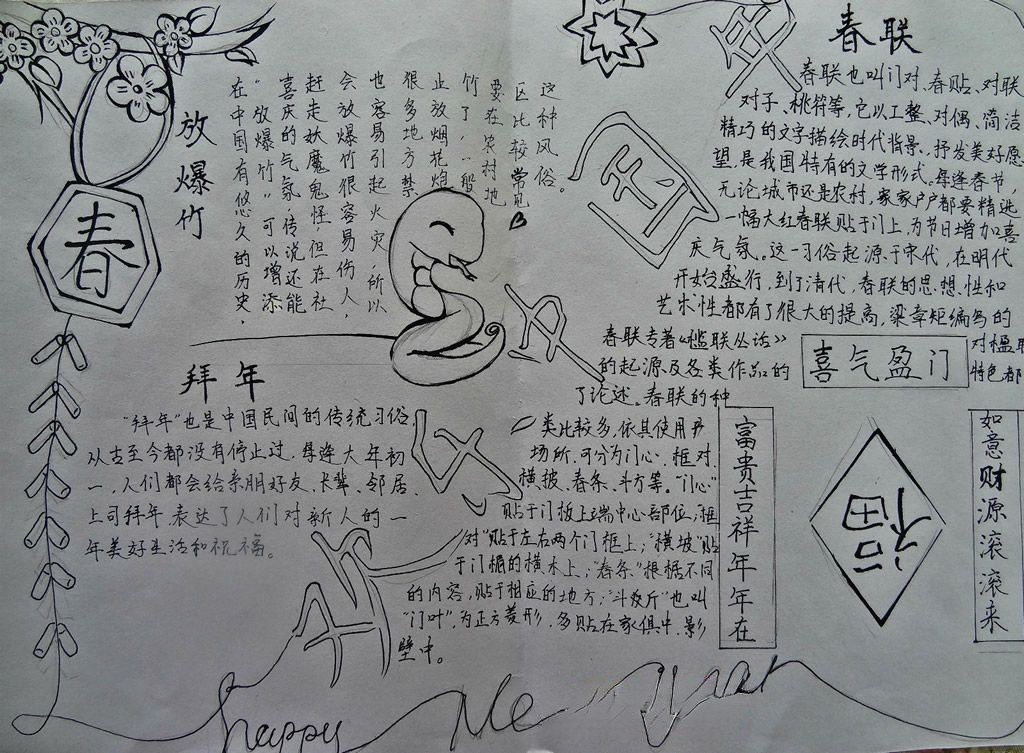 春
放爆竹
在中国有悠久的历史，
“放爆竹”可以增添
喜庆的气氛，传说还能
赶走妖魔鬼怪，但在社
会放爆竹很容易伤人，
也容易引起火灾，所以
很多地方禁
止放烟花炮
竹了，一般
要在农村地
区比较常见
这种风俗。
拜年
“拜年”也是中国民间的传统习俗，
从古至今都没有停止过，每逢大年初
一，人们都会给亲朋好友、长辈、邻居、
上司拜年，表达了人们对新人的一
年美好生活和祝福。
春联
春联也叫门对、春贴、对联
对子、桃符等，它以工整、对偶、简洁
精巧的文字描绘时代背景，抒发美好愿
望，是我国特有的文学形式。每逢春节，
无论城市还是农村，家家户户都要精选
一幅大红春联贴于门上，为节日增加喜
庆气氛。这一习俗起源于宋代，在明代
开始盛行，到了清代，春联的思想性和
艺术性都有了很大的提高，梁章矩编写的
春联专著《槛联丛话》
对楹联
的起源及各类作品的
特色都
了论述。春联的种
类比较多，依其使用
场所，可分为门心、框对、
横披、春条、斗方等。“门心”
贴于门板上端中心部位，框
对“贴于左右两个门框上，“横坡”贴
于门楣的横木上，“春条”根据不同
的内容，贴于相应的地方，“斗斤”也叫
“门叶”，为正方菱形，多贴在家俱中、影
壁中。
喜气盈门
富贵吉祥年年在
福
如意财源滚滚来
happy Ne Year